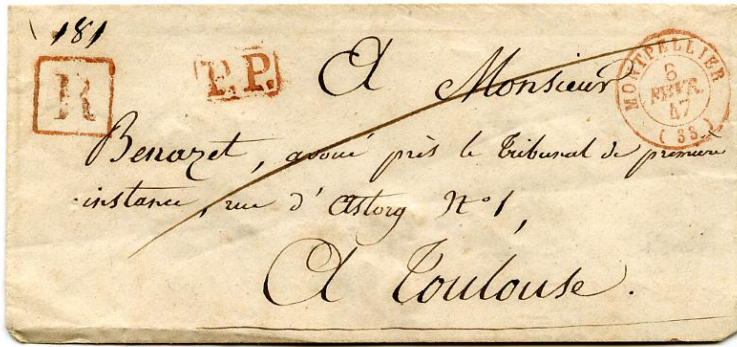 181
R
P.P.
MONTPELLIER
8
FEVR.
47
(33)
A Monsieur
Benazet, avoué près le Tribunal de première
instance, rue d'Astorg N° 1,
A Toulouse.